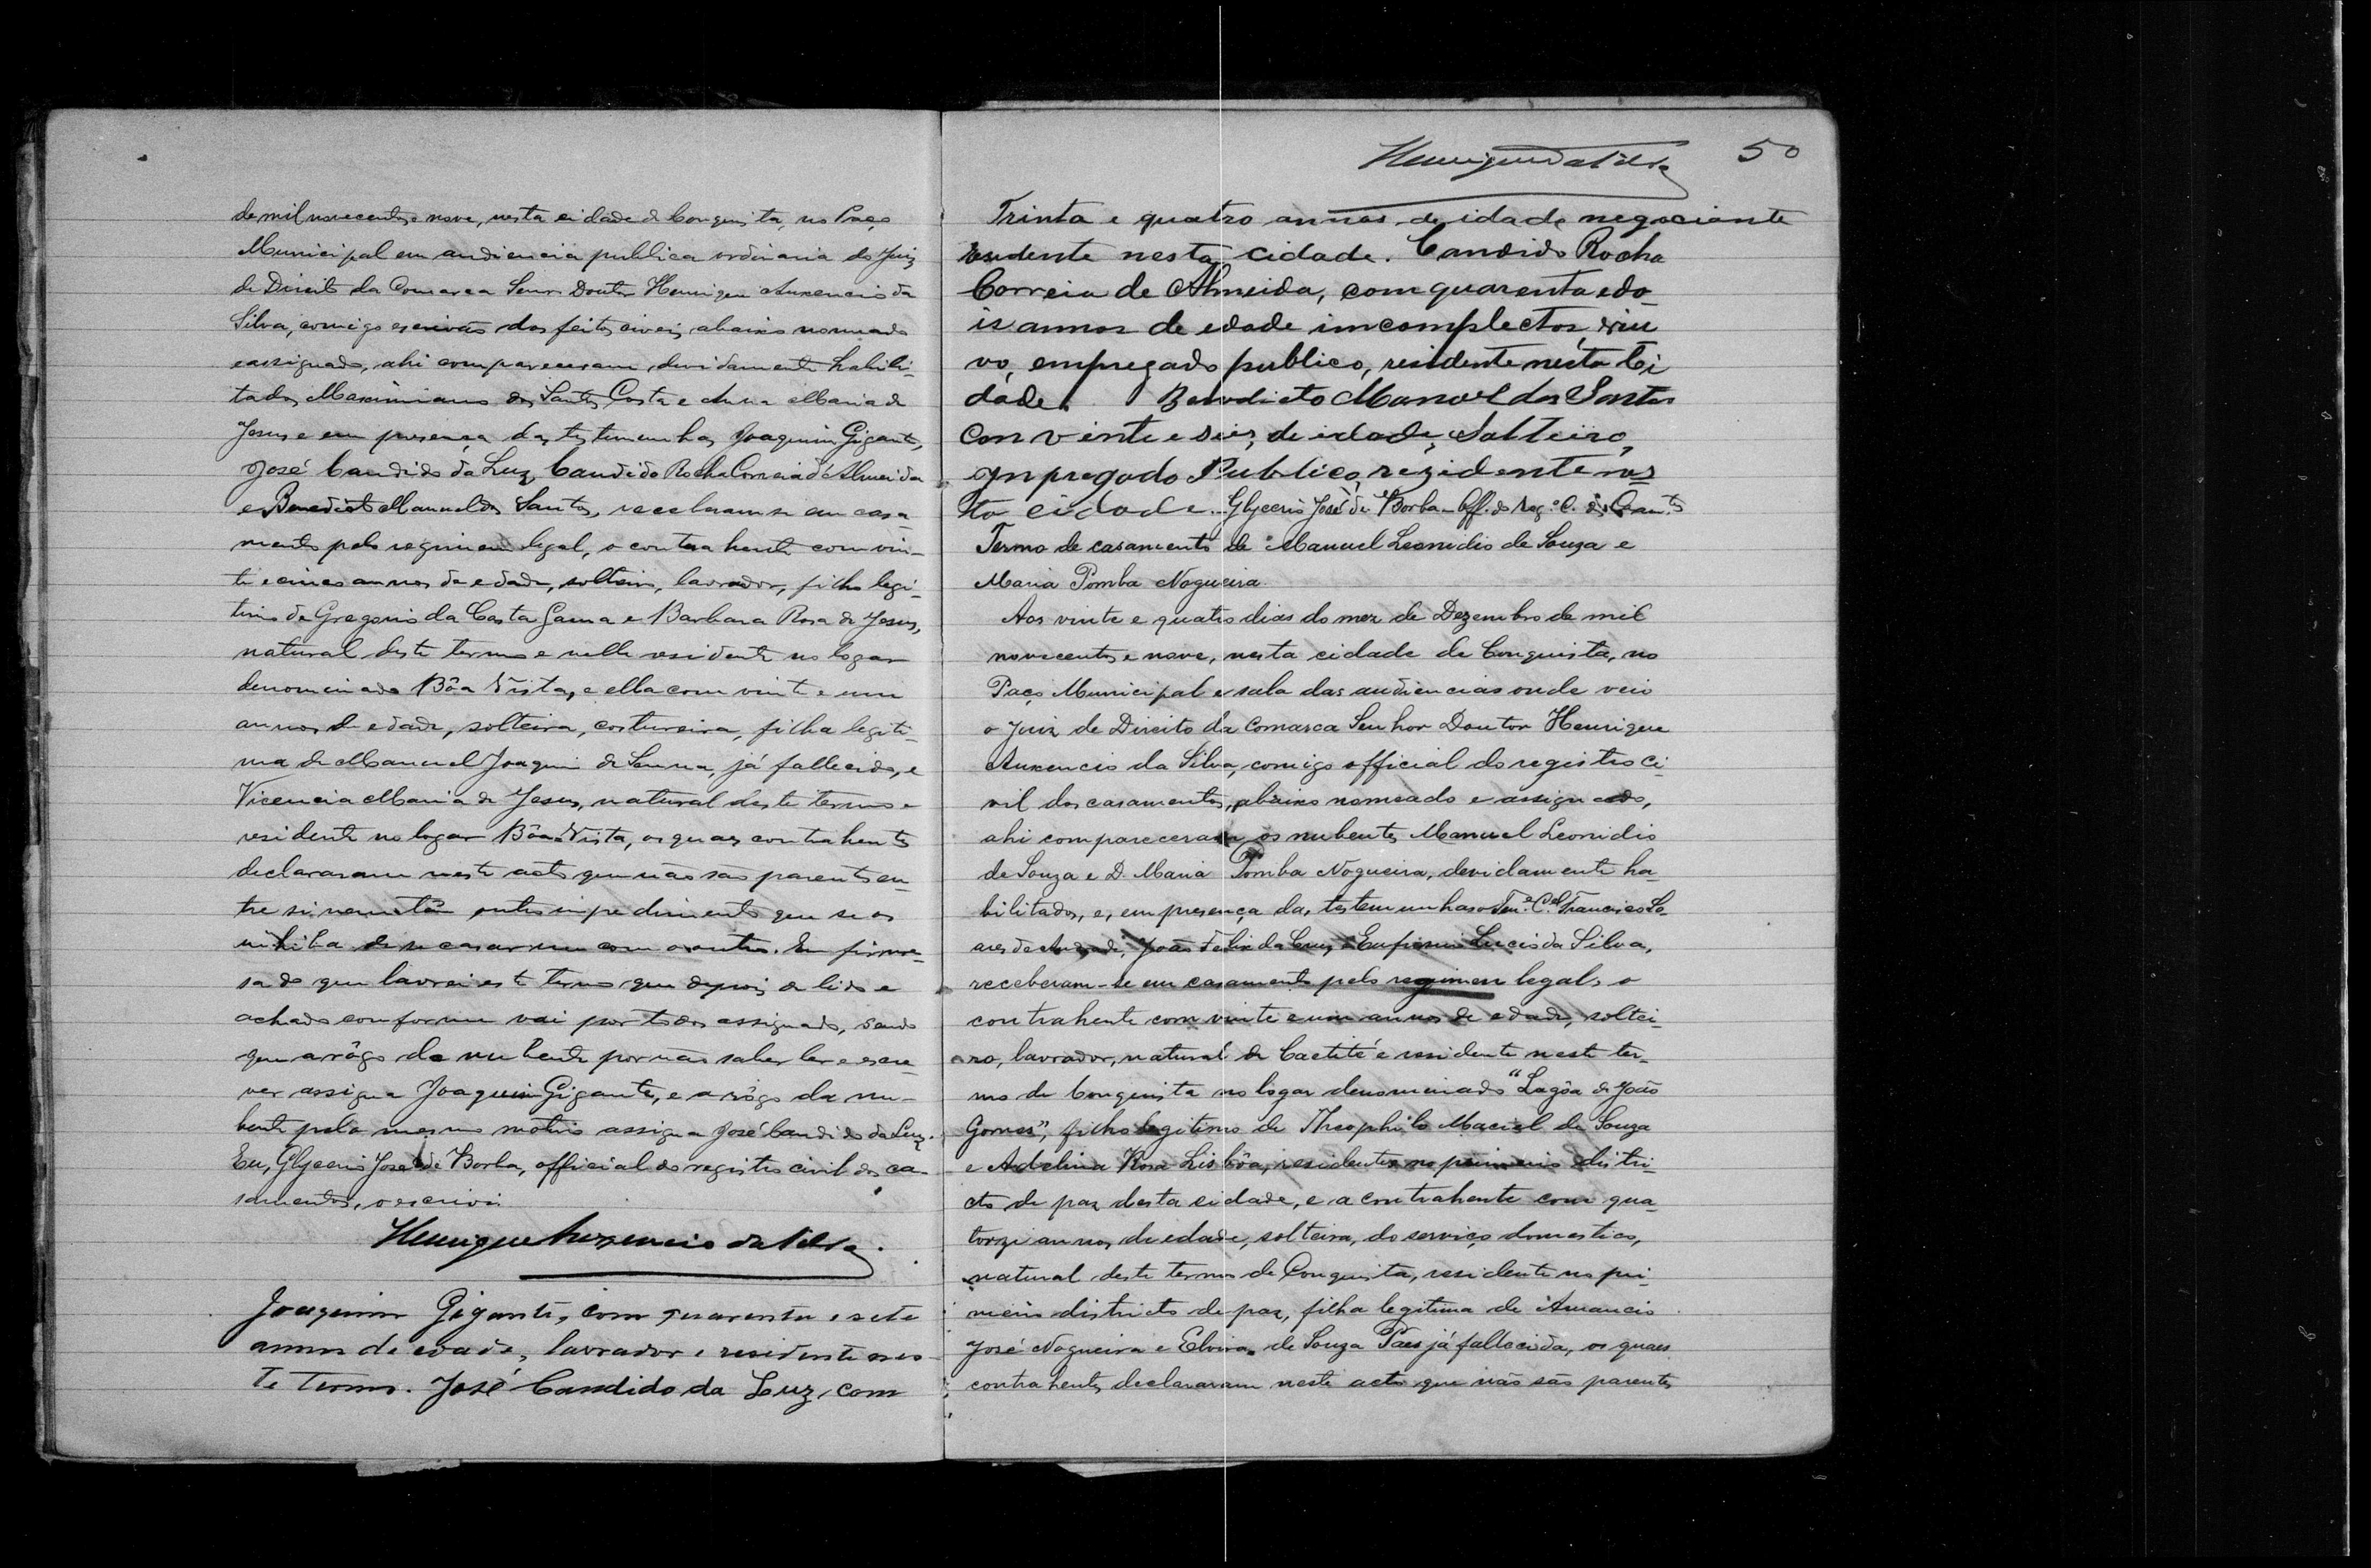 de mil novecentos e nove, nesta cidade de Conquista, no Paço
Municipal em audiencia publica ordinaria do Juiz
de Direito da Comarca Senr. Doutor Henrique Auxencio da
Silva, comigo escrivão dos feitos civeis abaixo nomeado
e assignado, ahi compareceram devidamente habili-
tados Maximiano dos Santos Costa e Anna Maria de
Jesus e em presença das testemunhas Joaquim Gigante,
José Candido da Luz, Candido Rocha Correia d'Almeida
e Benedicto Manuel dos Santos, receberam-se em casa-
mento pelo regimen legal, o contrahente com vin-
te e cinco annos de edade, solteiro, lavrador, filho legi-
timo de Gregorio da Costa Gama e Barbara Rosa de Jesus,
natural deste termo e nelle residente no logar
denominado Bôa Vista, e ella com vinte e um
annos de edade, solteira, costureira, filha legiti-
ma de Manuel Joaquim de Senna, já fallecido, e
Vicencia Maria de Jesus, natural deste termo e
residente no logar Bôa Vista, os quaes contrahentes
declararam neste acto que não são parentes en-
tre si nem tem outro impedimento que se os
inhiba de se casar um com o outro. Em firme-
sa do que lavrei este termo que depois de lido e
achado conforme vai por todos assignado, sendo
que a rôgo do nubente por não saber ler e escre-
ver assigna Joaquim Gigante, e a rôgo da nu-
bente pelo mesmo motivo assigna José Candido da Luz.
Eu, Glycerio José de Borba, official do registro civil dos ca-
samentos, o escrevi.
Henrique Auxencio da Silva.
Joaquim Gigante, com quarenta e sete
annos de edade, lavrador e residente nes-
te termo. José Candido da Luz, com
Henrique da Silva 50
Trinta e quatro annos de idade negociante
residente nesta cidade. Candido Rocha
Correia de Almeida, com quarenta e do-
is annos de edade imcomplectos, viu
vo, empregado publico, residente nésta Ci
dáde. Benedicto Manoel dos Santos
Con vinte e seis, de idade, Solteiro,
Inpregado Publico, rezidente nes
ta cidade. Glycerio José de Borba Off. do Reg.º C. dos Cam.tos
Termo de casamento de Manuel Leonidio de Souza e
Maria Pomba Nogueira.
Aos vinte e quatro dias do mez de Dezembro de mil
novecentos e nove, nesta cidade de Conquista, no
Paço Municipal e sala das audiencias onde veio
o Juiz de Direito da Comarca Senhor Doutor Henrique
Auxencio da Silva, comigo official do registro ci-
vil dos casamentos, abaixo nomeado e assignado,
ahi compareceram os nubentes Manuel Leonidio
de Souza e D. Maria Pomba Nogueira, devidamente ha-
bilitados, e, em presença das testemunhas o Ten.e C.el Francisco So-
ares de Andrade, João Felix da Cruz e Eufrasio Lucio da Silva,
receberam-se em casamento pelo regimen legal, o
contrahente com vinte e um annos de edade, soltei-
ro, lavrador, natural de Caetité e residente neste ter-
mo de Conquista no logar denominado "Lagôa de João
Gomes", filho legitimo de Theophilo Maciel de Souza
e Adelina Rosa Lisbôa, residentes no primeiro distri-
cto de paz desta cidade, e a contrahente com qua-
torze annos de edade, solteira, do serviço domestico,
natural deste termo de Conquista, residente no pri-
meiro districto de paz, filha legitima de Amancio
José Nogueira e Elvira de Souza Paes já fallecida, os quaes
contrahentes declararam neste acto que não são parentes